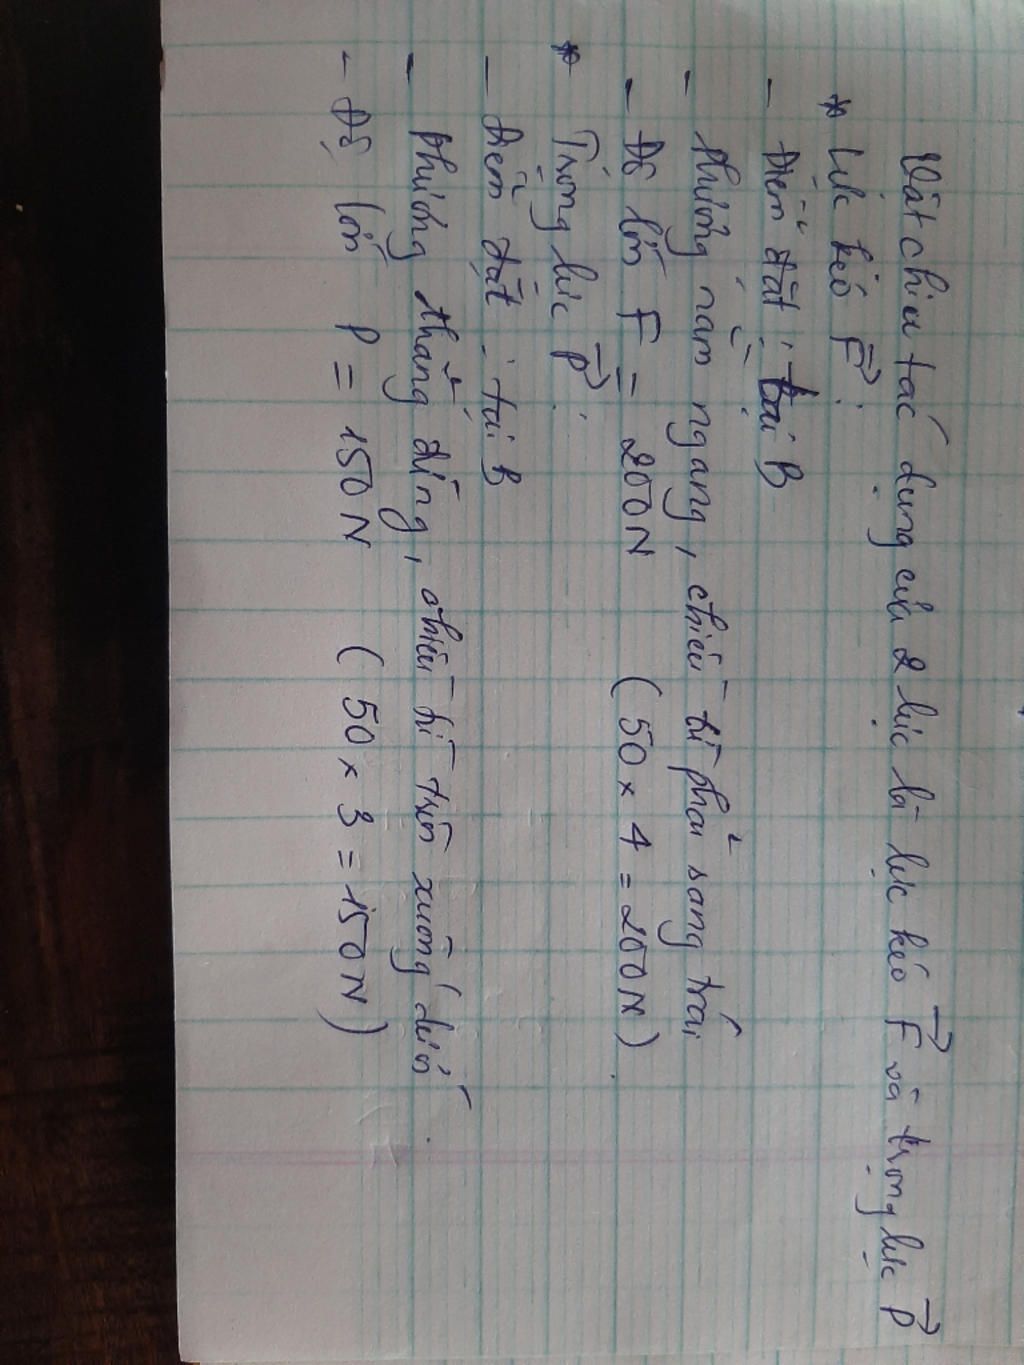 Vật chịu tác dụng của 2 lực là lực kéo F và trọng lực P
* Lực kéo F:
- Điểm đặt: tại B
- Phương nằm ngang, chiều từ phải sang trái
- Độ lớn F = 200N (50 x 4 = 200N).
* Trọng lực P:
- Điểm đặt: tại B
- Phương thẳng đứng, chiều từ trên xuống dưới.
- Độ lớn P = 150N (50 x 3 = 150N)